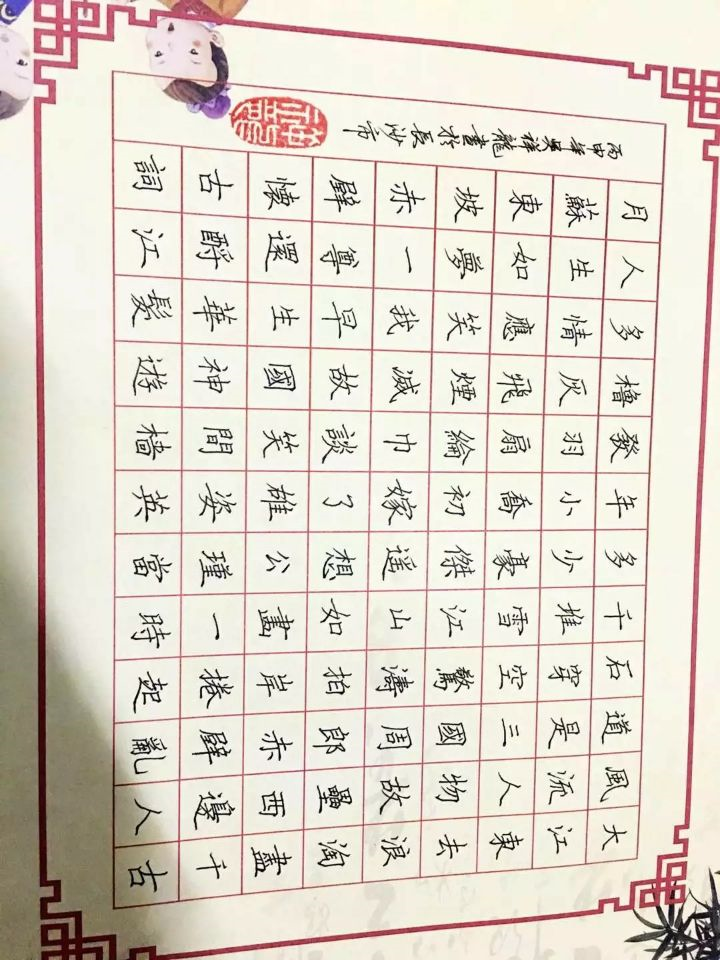 大江東去浪淘盡千古
風流人物故壘西邊人
道是三國周郎赤壁亂
石穿空驚濤拍岸捲起
千堆雪江山如畫一時
多少豪傑遥想公瑾當
年小喬初嫁了雄姿英
發羽扇綸巾談笑間檣
櫓灰飛煙滅故國神遊
多情應笑我早生華髮
人生如夢一尊還酹江
月蘇東坡赤壁懷古詞
丙申年吳祥龍書於長沙市